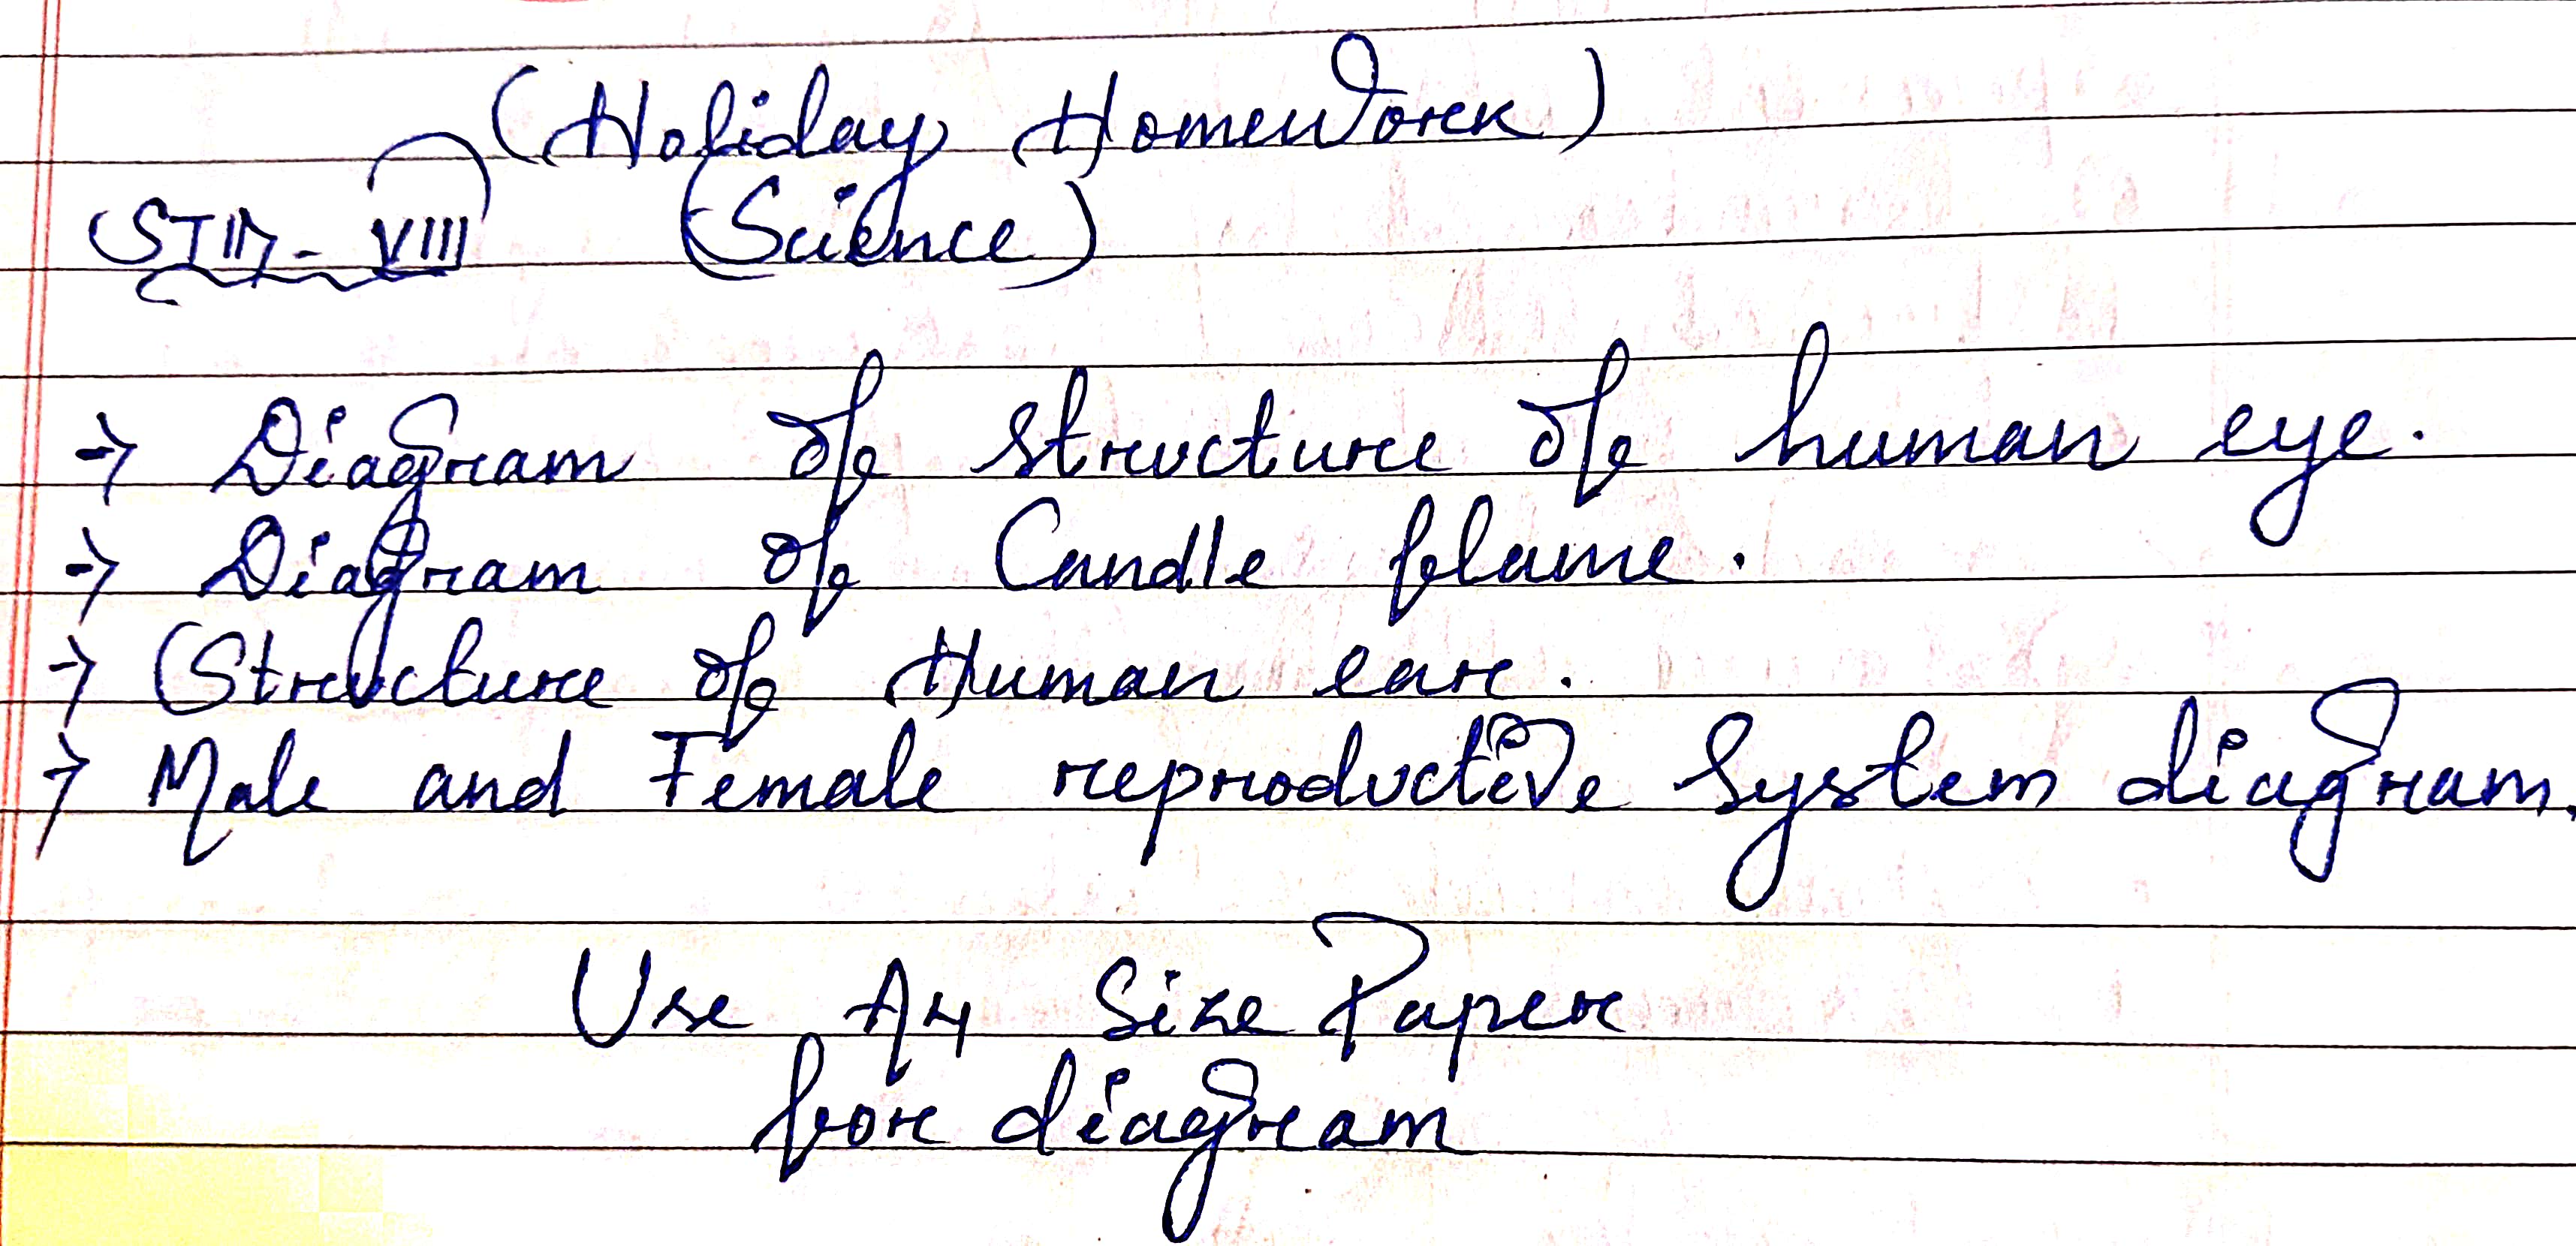 (Holiday Homework)
STD - VIII (Science)
→ Diagram of structure of human eye.
→ Diagram of Candle flame.
→ Structure of Human ear.
→ Male and Female reproductive System diagram.
Use A4 Size Paper
for diagram